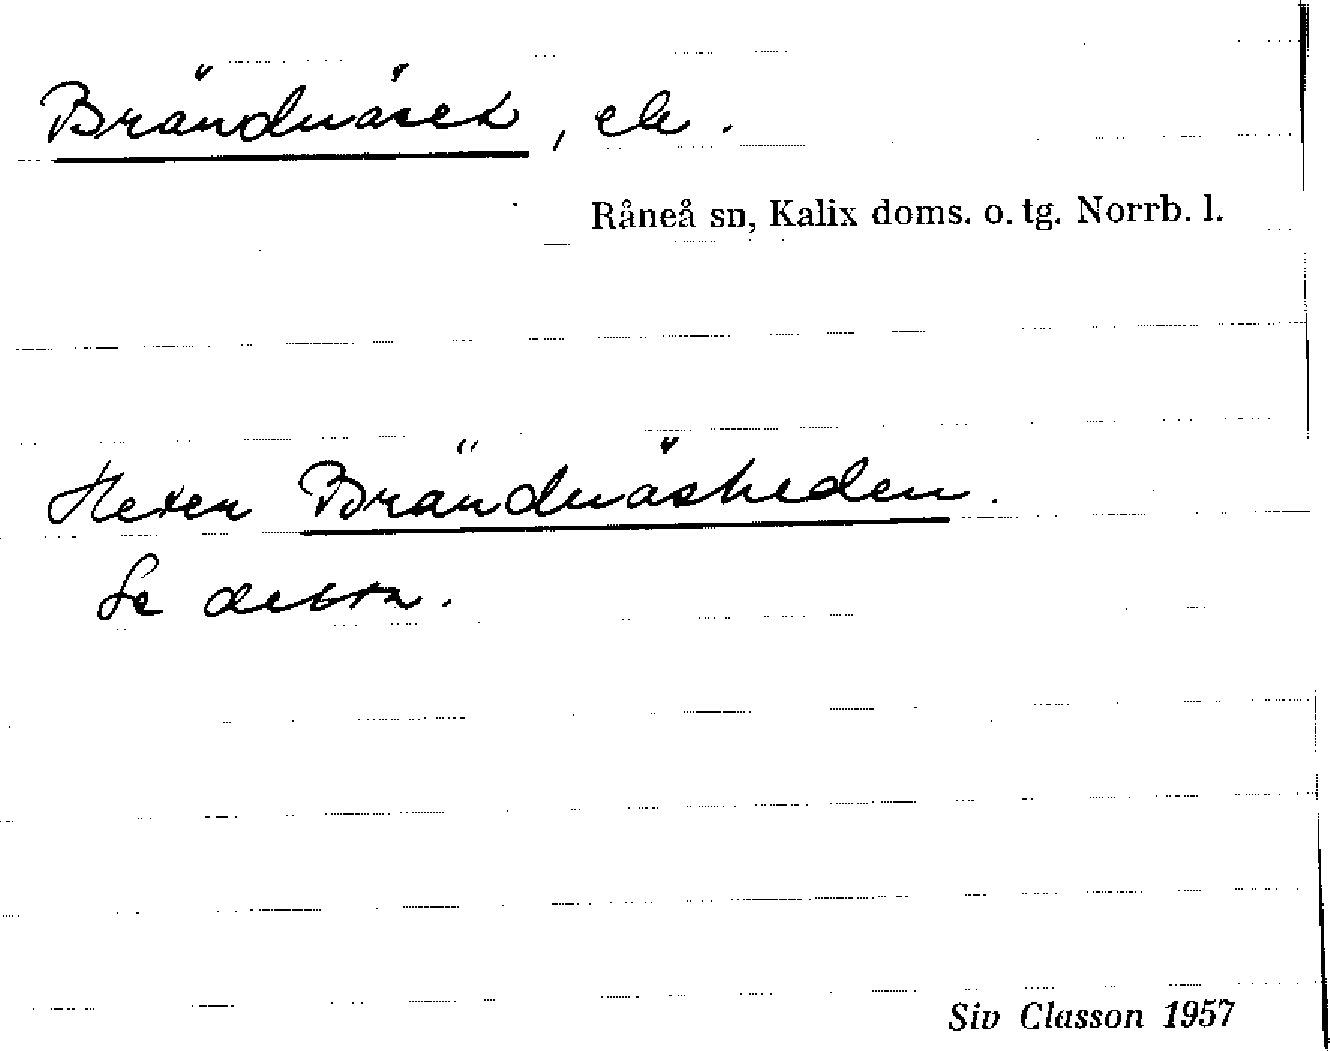 Brändnäset, ele.
Råneå sn, Kalix doms. o. tg. Norrb. l.
Heter Brändnäsheden.
Se detta.
Siv Classon 1957